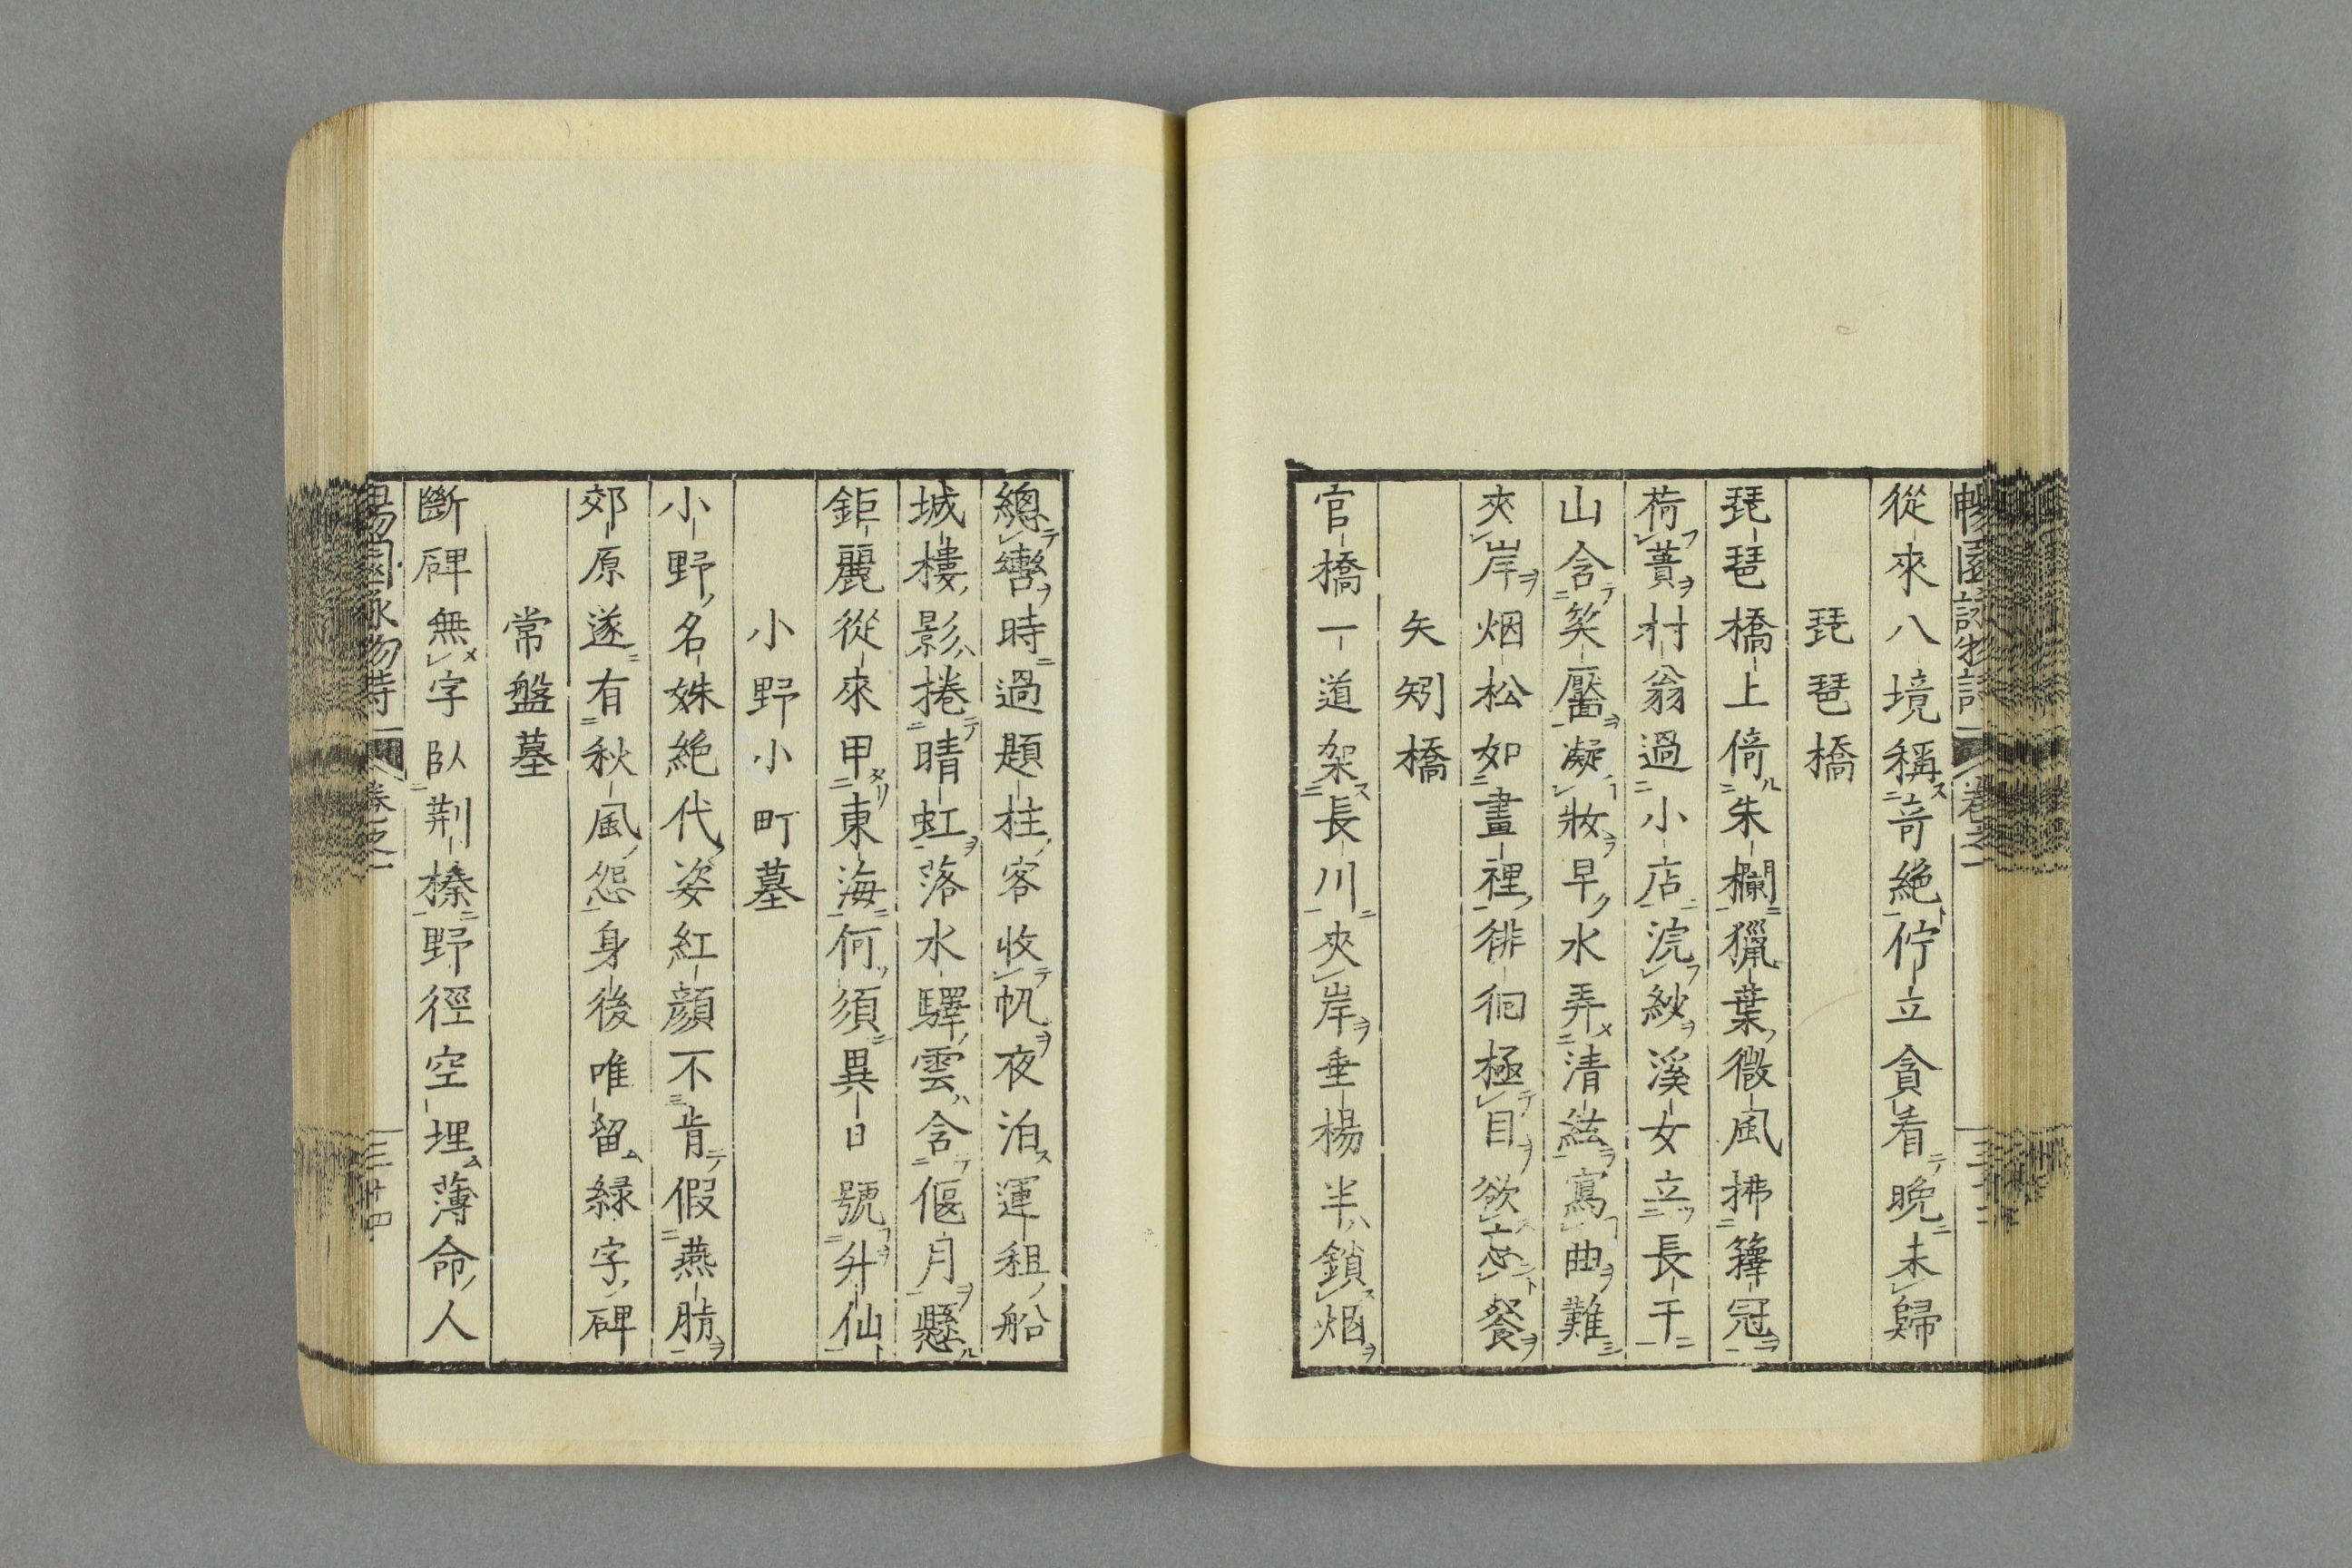 從來八境稱奇絶佇立貪看晩未歸
琵琶橋
琵琶橋上倚朱欄獵葉微風拂籜冠
荷蕢村翁過小店浣紗溪女立長干
山含笑靨凝妝早水弄清絃寫曲難
夾岸烟松如畫裡徘徊極目欲忘餐
矢矧橋
官橋一道架長川夾岸垂楊半鎖烟
總轡時過題柱客收帆夜泊運租船
城樓影捲晴虹落水驛雲含偃月懸
鉅麗從來甲東海何須異日號升仙
小野小町墓
小野名姝絶代姿紅顔不肯假燕脂
郊原遂有秋風怨身後唯留緑字碑
常盤墓
斷碑無字臥荆榛野徑空埋薄命人
卷之一